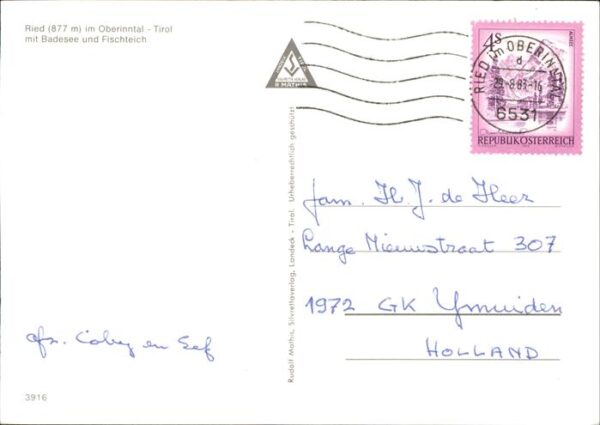 Ried (877 m) im Oberinntal - Tirol
mit Badesee und Fischteich
4S
ALMSEE
REPUBLIK ÖSTERREICH
RIED im OBERINNTAL
d
-8.83-16
6531
R MATHIS
Rudolf Mathis, Silvrettaverlag, Landeck - Tirol. Urheberrechtlich geschützt
fam. H. J. de Heer
Lange Nieuwstraat 307
1972 GK Ymuiden
HOLLAND
afz. Coby en Sef
3916